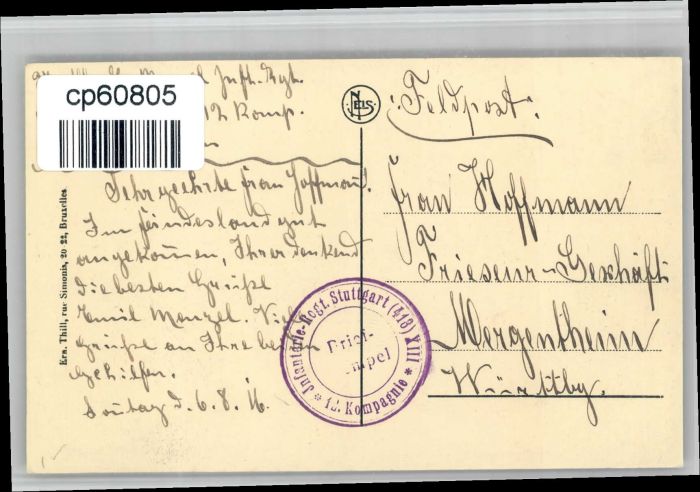 cp60805
Menzel Infr. Regt.
12 Komp.
Sehr geehrte Frau Hoffmann.
Im Feindesland gut
angekommen, Ihrer denkend
die besten Grüße
Emil Menzel. Viele
Grüße an Ihre beiden
Gehilfen.
Sontag d. 6.8.16
Ern. Thill, rue Simonis, 20-22, Bruxelles
NELS
Feldpost.
Frau Hoffmann
Friseur-Geschäft
Mergentheim
Württbg.
Infanterie-Regt. Stuttgart (418) XIII
* 12. Kompagnie *
Brief-
mpel